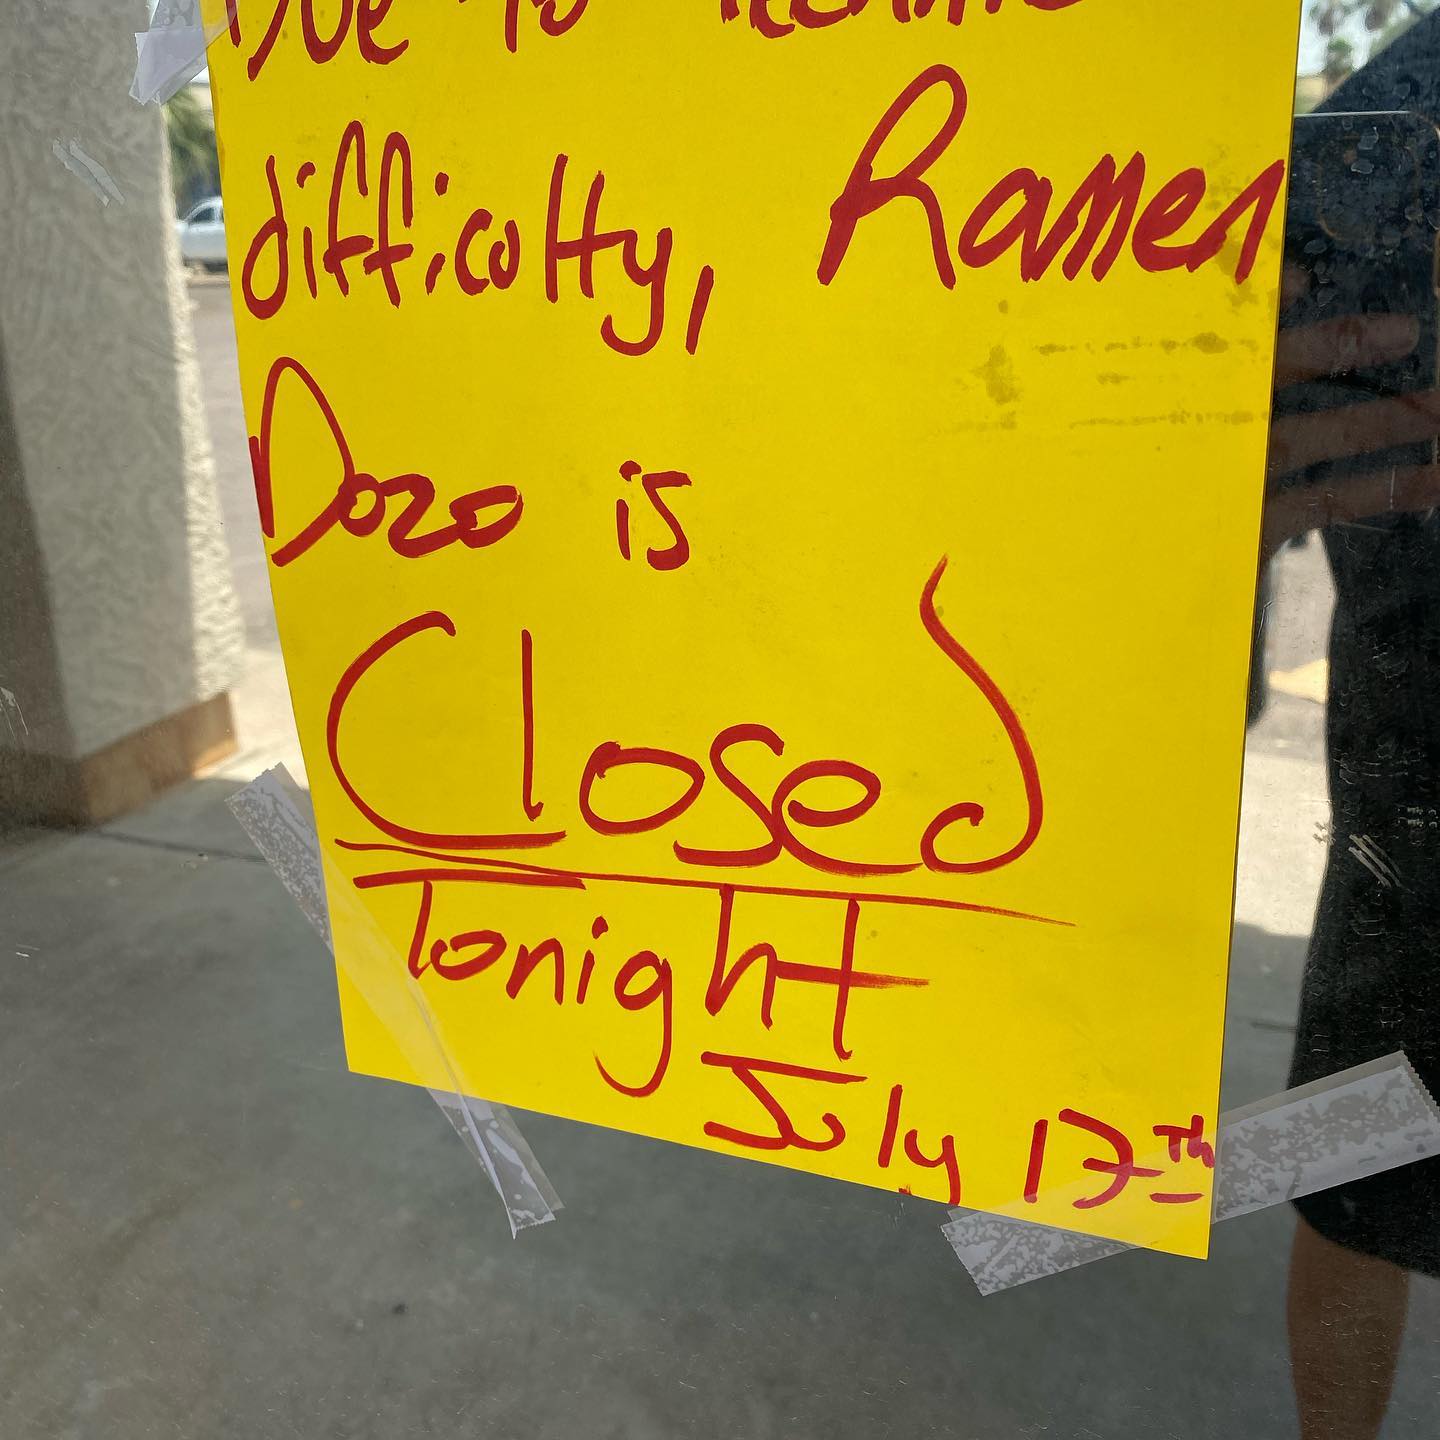 Due to
difficulty, Ramen
Dozo is
Closed
Tonight
July 17th